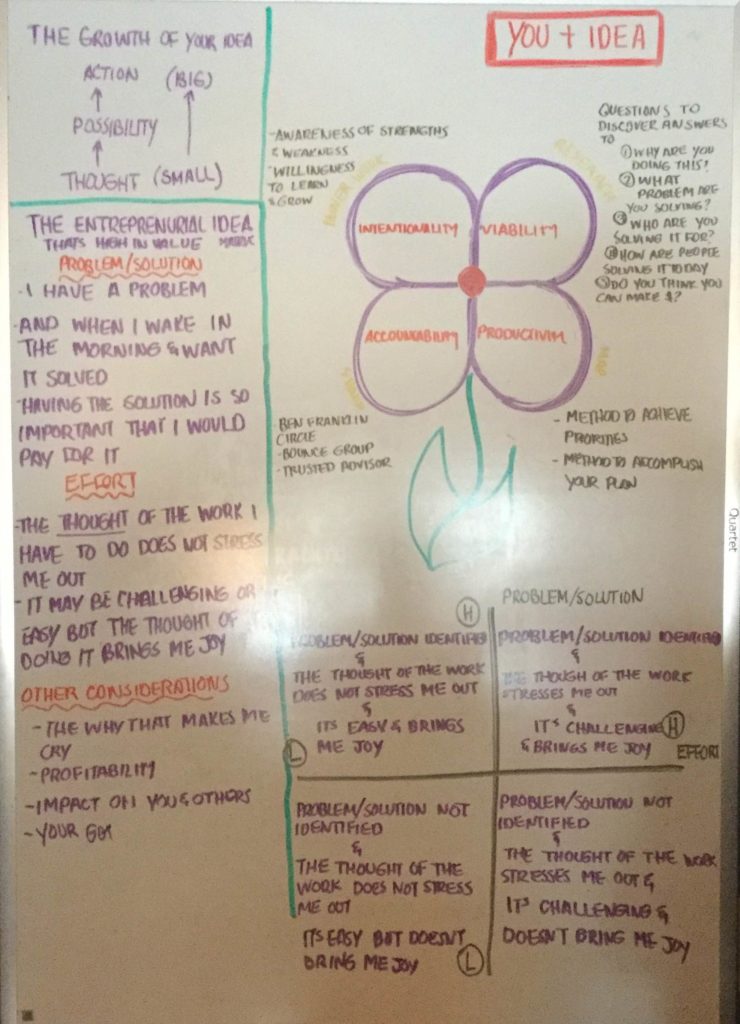 THE GROWTH OF YOUR IDEA
ACTION (BIG)
POSSIBILITY
THOUGHT (SMALL)
THE ENTREPRENURIAL IDEA
THATS HIGH IN VALUE
PROBLEM/SOLUTION
- I HAVE A PROBLEM
- AND WHEN I WAKE IN
THE MORNING & WANT
IT SOLVED
- HAVING THE SOLUTION IS SO
IMPORTANT THAT I WOULD
PAY FOR IT
EFFORT
- THE THOUGHT OF THE WORK I
HAVE TO DO DOES NOT STRESS
ME OUT
- IT MAY BE CHALLENGING OR
EASY BUT THE THOUGHT OF
DOING IT BRINGS ME JOY
OTHER CONSIDERATIONS
- THE WHY THAT MAKES ME
CRY
- PROFITABILITY
- IMPACT ON YOU & OTHERS
- YOUR GUT
YOU + IDEA
- AWARENESS OF STRENGTHS
& WEAKNESS
- WILLINGNESS
TO LEARN
& GROW
QUESTIONS TO
DISCOVER ANSWERS
TO
① WHY ARE YOU
DOING THIS?
② WHAT
PROBLEM ARE
YOU SOLVING?
③ WHO ARE YOU
SOLVING IT FOR?
④ HOW ARE PEOPLE
SOLVING IT TODAY
⑤ DO YOU THINK YOU
CAN MAKE $?
INTENTIONALITY
VIABILITY
ACCOUNTABILITY
PRODUCTIVITY
RESEARCH
MAP
- BEN FRANKLIN
CIRCLE
- BOUNCE GROUP
- TRUSTED ADVISOR
- METHOD TO ACHIEVE
PRIORITIES
- METHOD TO ACCOMPLISH
YOUR PLAN
Quartet
H
PROBLEM/SOLUTION
PROBLEM/SOLUTION IDENTIFIED
&
THE THOUGHT OF THE WORK
DOES NOT STRESS ME OUT
&
ITS EASY & BRINGS
ME JOY
L
PROBLEM/SOLUTION IDENTIFIED
&
THE THOUGH OF THE WORK
STRESSES ME OUT
&
IT'S CHALLENGING
& BRINGS ME JOY
H
EFFORT
PROBLEM/SOLUTION NOT
IDENTIFIED
&
THE THOUGHT OF THE
WORK DOES NOT STRESS
ME OUT
ITS EASY BUT DOESN'T
BRING ME JOY
L
PROBLEM/SOLUTION NOT
IDENTIFIED
&
THE THOUGHT OF THE WORK
STRESSES ME OUT &
IT'S CHALLENGING &
DOESN'T BRING ME JOY